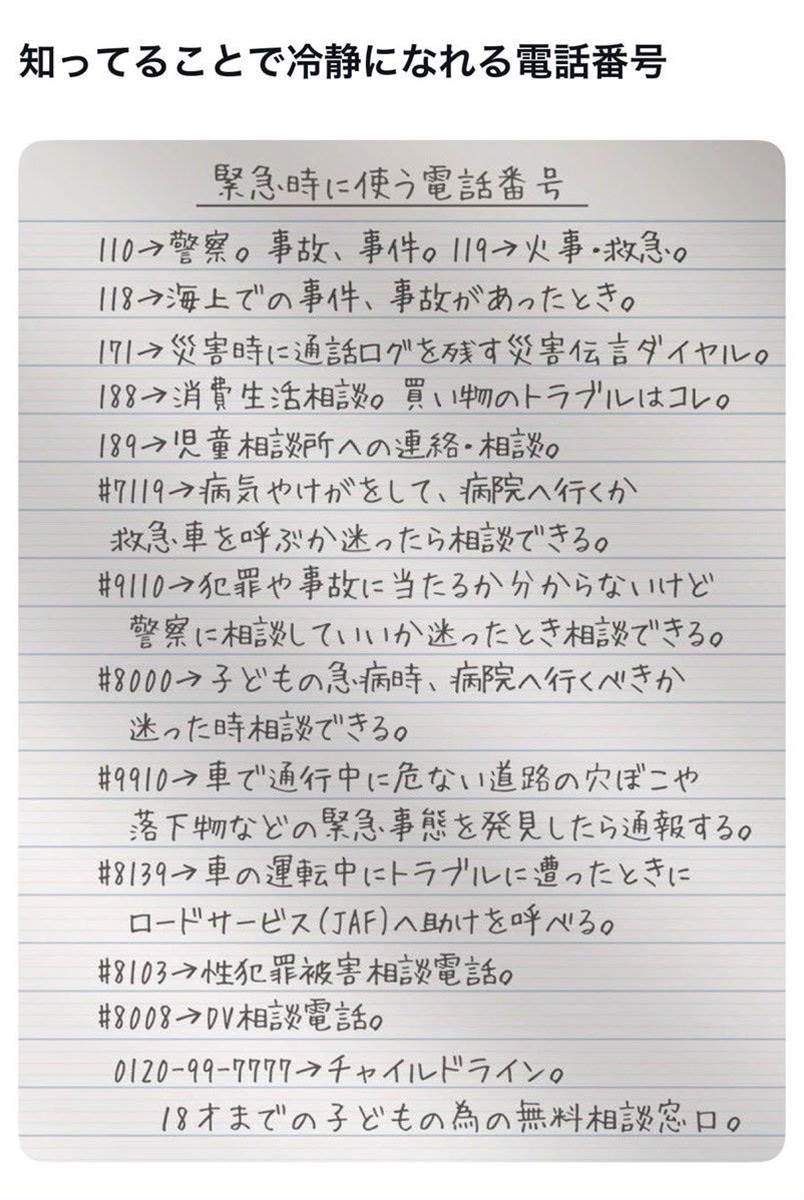 知ってることで冷静になれる電話番号
緊急時に使う電話番号
110→警察。事故、事件。119→火事・救急。
118→海上での事件、事故があったとき。
171→災害時に通話ログを残す災害伝言ダイヤル。
188→消費生活相談。買い物のトラブルはコレ。
189→児童相談所への連絡・相談。
#7119→病気やけがをして、病院へ行くか
救急車を呼ぶか迷ったら相談できる。
#9110→犯罪や事故に当たるか分からないけど
警察に相談していいか迷ったとき相談できる。
#8000→子どもの急病時、病院へ行くべきか
迷った時相談できる。
#9910→車で通行中に危ない道路の穴ぼこや
落下物などの緊急事態を発見したら通報する。
#8139→車の運転中にトラブルに遭ったときに
ロードサービス(JAF)へ助けを呼べる。
#8103→性犯罪被害相談電話。
#8008→DV相談電話。
0120-99-7777→チャイルドライン。
18才までの子どもの為の無料相談窓口。